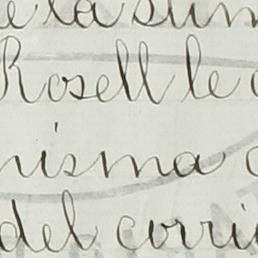 e la sum
Rosell le
misma
del corri